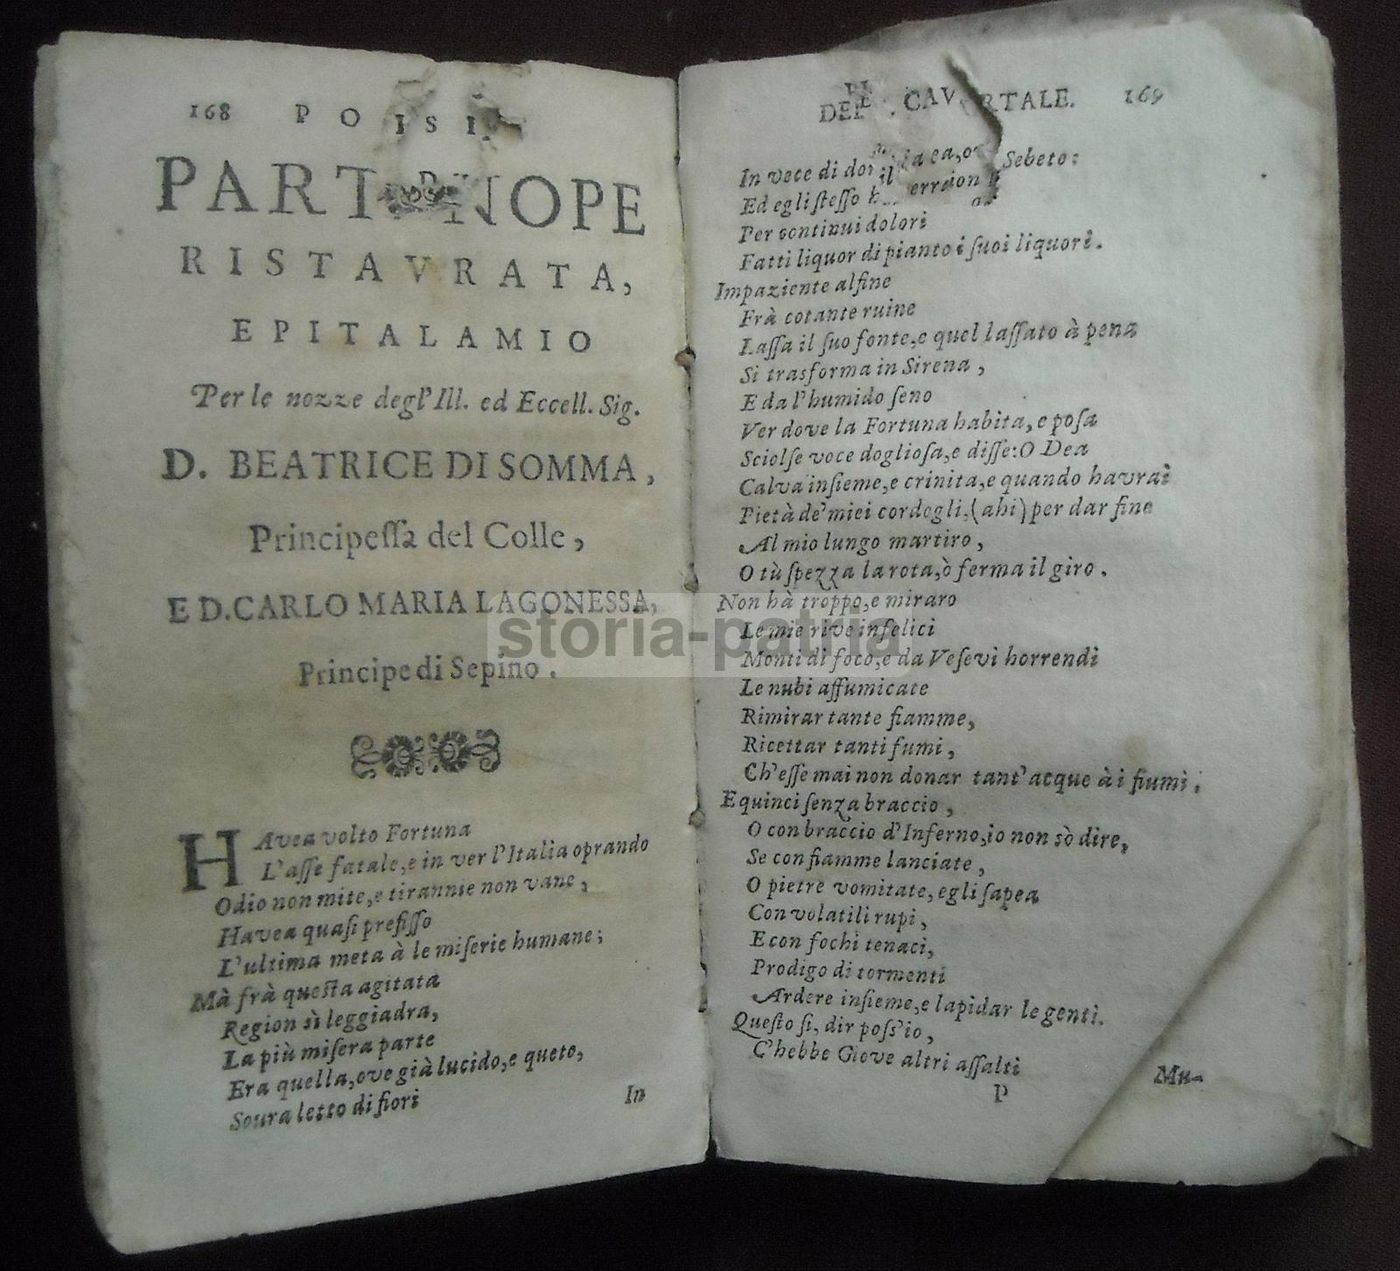 168 POISI
PARTENOPE
RISTAVRATA,
EPITALAMIO
Per le nozze degl'Ill. ed Eccell. Sig.
D. BEATRICE DI SOMMA,
Principeſſa del Colle,
E D. CARLO MARIA LAGONESSA,
Principe di Sepino.
HAvea volto Fortuna
L'aſſe fatale, e in ver l'Italia oprando
Odio non mite, e tirannie non vane,
Havea quaſi prefiſſo
L'ultima meta à le miſerie humane;
Mà frà queſta agitata
Region sì leggiadra,
La più miſera parte
Era quella, ove già lucido, e queto,
Soura letto di fiori
In
DEL CAV RTALE. 169
In vece di Sebeto:
Ed egli ſteſſo
Per continui dolori
Fatti liquor di pianto i ſuoi liquori.
Impaziente alfine
Frà cotante ruine
Laſſa il ſuo fonte, e quel laſſato à pena
Si trasforma in Sirena,
E da l'humido ſeno
Ver dove la Fortuna habita, e poſa
Sciolſe voce doglioſa, e diſſe: O Dea
Calva inſieme, e crinita, e quando havrai
Pietà de' miei cordogli, (ahi) per dar fine
Al mio lungo martiro,
O tù ſpezza la rota, ò ferma il giro.
Non hà troppo, e miraro
Le mie rive infelici
Monti di foco, e da Veſevi horrendi
Le nubi affumicate
Rimirar tante fiamme,
Ricettar tanti fumi,
Ch'eſſe mai non donar tant'acque à i fiumi.
E quinci ſenza braccio,
O con braccio d'Inferno, io non sò dire,
Se con fiamme lanciate,
O pietre vomitate, egli ſapea
Con volatili rupi,
E con fochi tenaci,
Prodigo di tormenti
Ardere inſieme, e lapidar le genti.
Queſto ſi, dir poſs'io,
C'hebbe Giove altri aſſalti
P Mu-
storia-patria